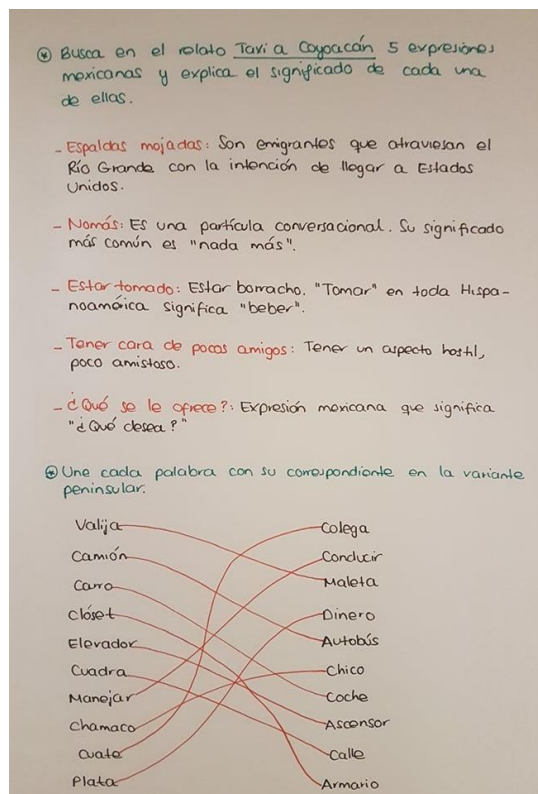 Busca en el relato Taxi a Coyoacán 5 expresiones
mexicanas y explica el significado de cada una
de ellas.
- Espaldas mojadas: Son emigrantes que atraviesan el
Río Grande con la intención de llegar a Estados
Unidos.
- Nomás: Es una partícula conversacional. Su significado
más común es "nada más".
- Estar tomado: Estar borracho. "Tomar" en toda Hispa-
noamérica significa "beber".
- Tener cara de pocos amigos: Tener un aspecto hostil,
poco amistoso.
- ¿Qué se le ofrece?: Expresión mexicana que significa
"¿Qué desea?"
Une cada palabra con su correspondiente en la variante
peninsular.
Valija Colega
Camión Conducir
Carro Maleta
Clóset Dinero
Elevador Autobús
Cuadra Chico
Manejar Coche
Chamaco Ascensor
Cuate Calle
Plata Armario